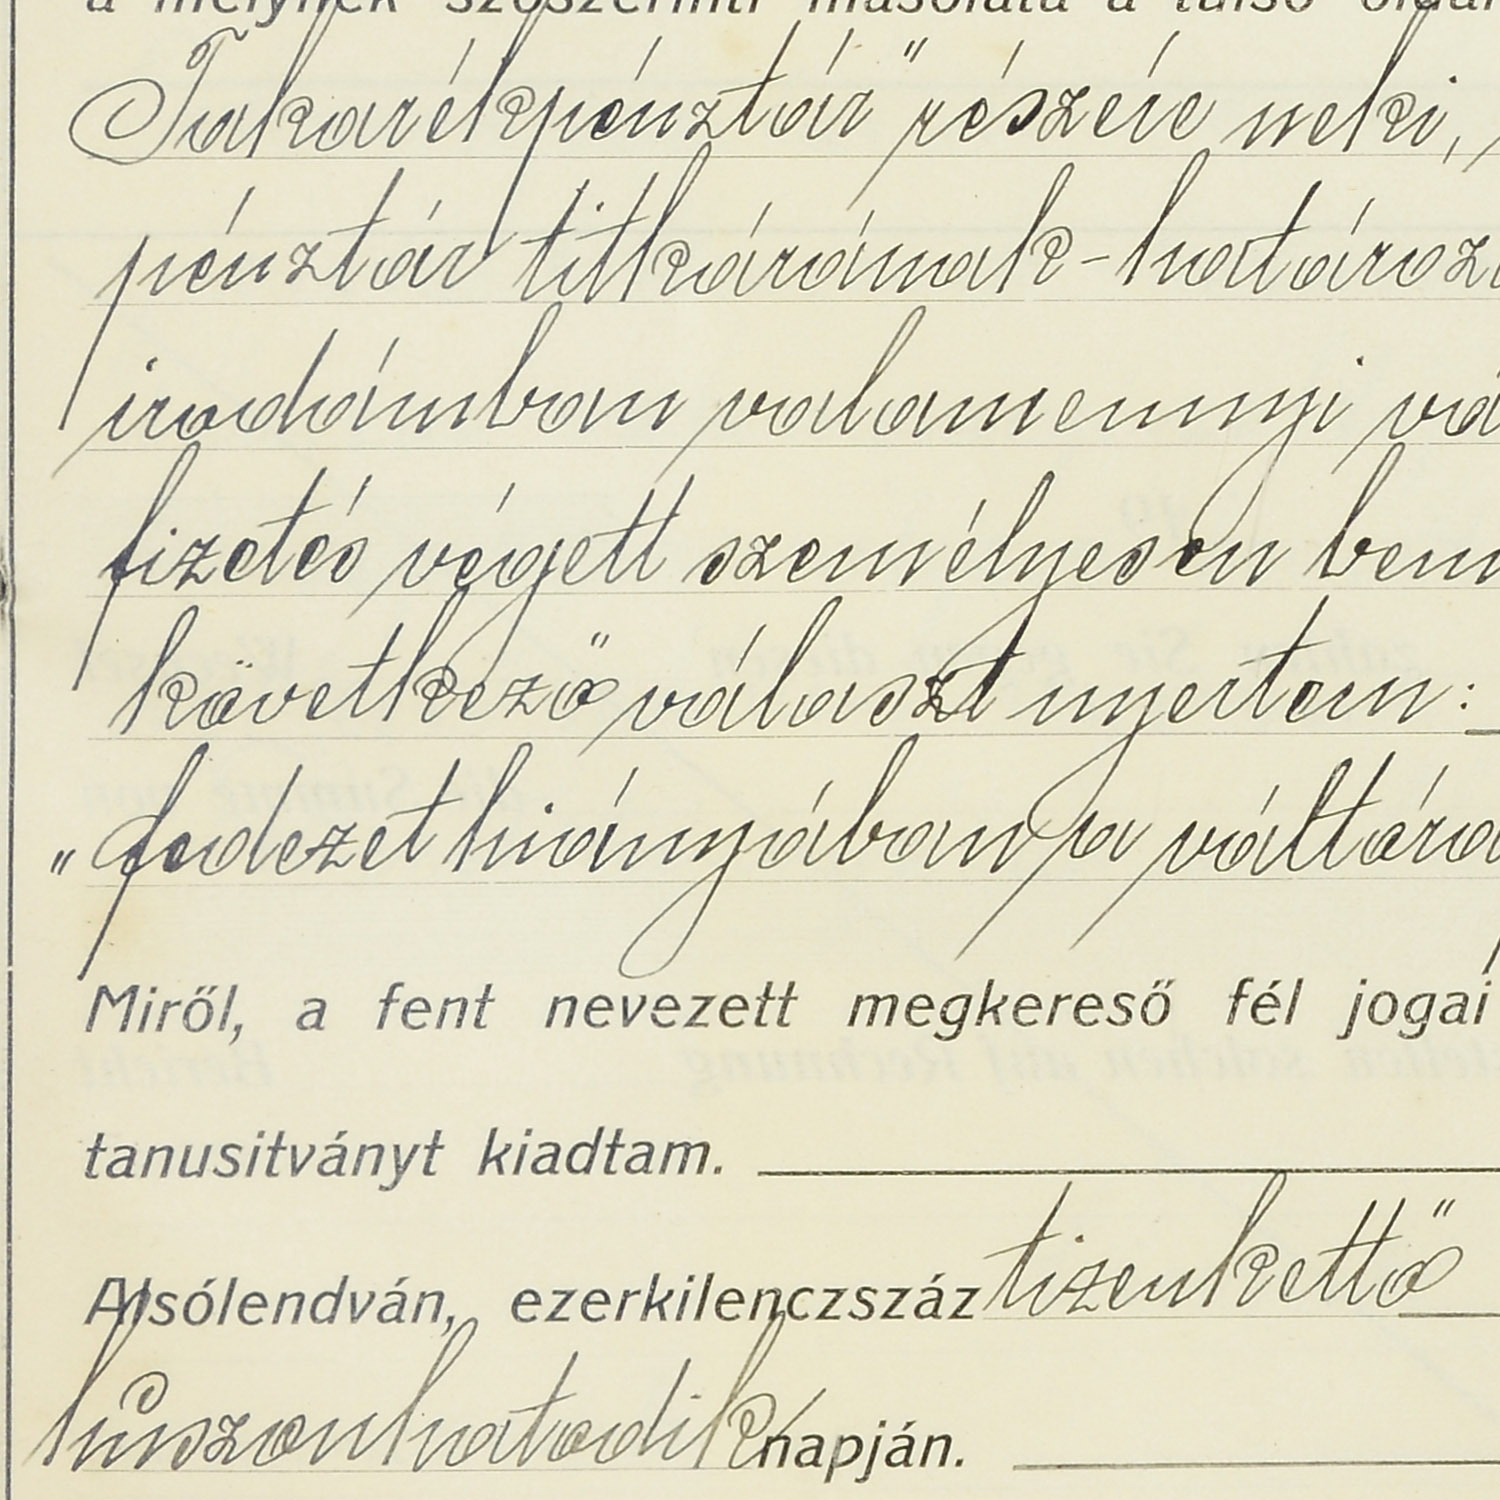 a melynek szószerinti másolata a túlsó
Takarékpénztár" részére neki,
pénztár titkárának - határoz
irodámban valamennyi vá
fizetés végett személyesen bem
következő választ nyertem:
„fedezet hiányában a váltára
Miről, a fent nevezett megkereső fél jogai
tanusitványt kiadtam.
Alsólendván, ezerkilenczszáz tizenkettő
huszonhatodik napján.